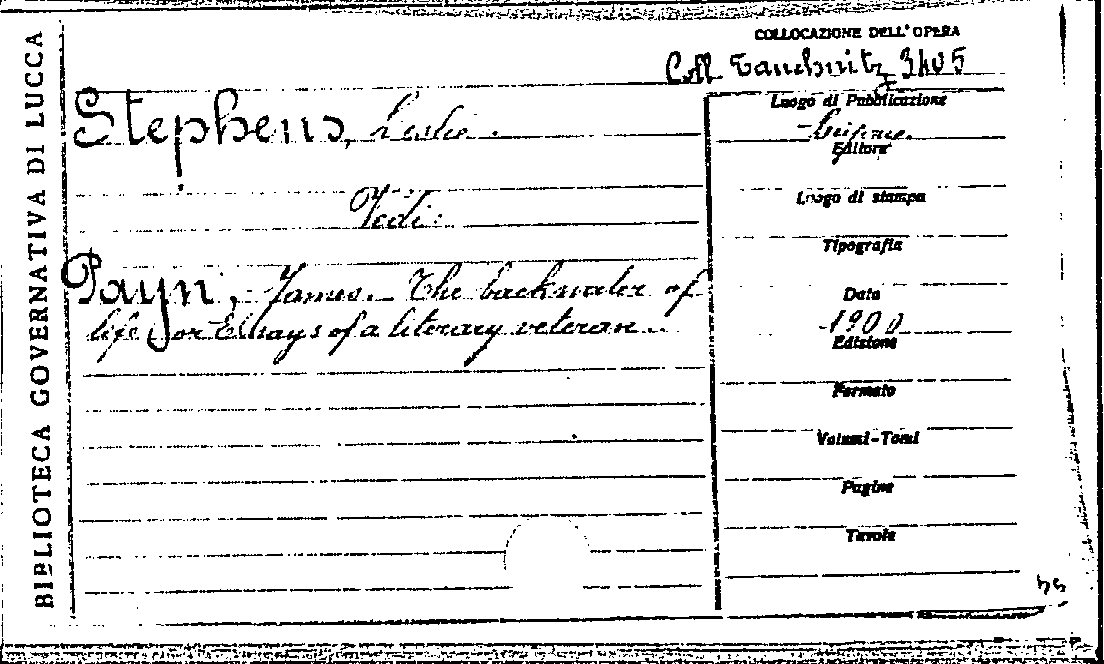 BIBLIOTECA GOVERNATIVA DI LUCCA
COLLOCAZIONE DELL'OPERA
Coll. Tauchnitz 3405
Stephens, Leslie.
Vedi:
Payn, James. The backwater of
life, or Essays of a literary veteran.
Luogo di Pubblicazione
Editore
Luogo di stampa
Tipografia
Data
1900
Edizione
Formato
Volumi-Tomi
Pagine
Tavole